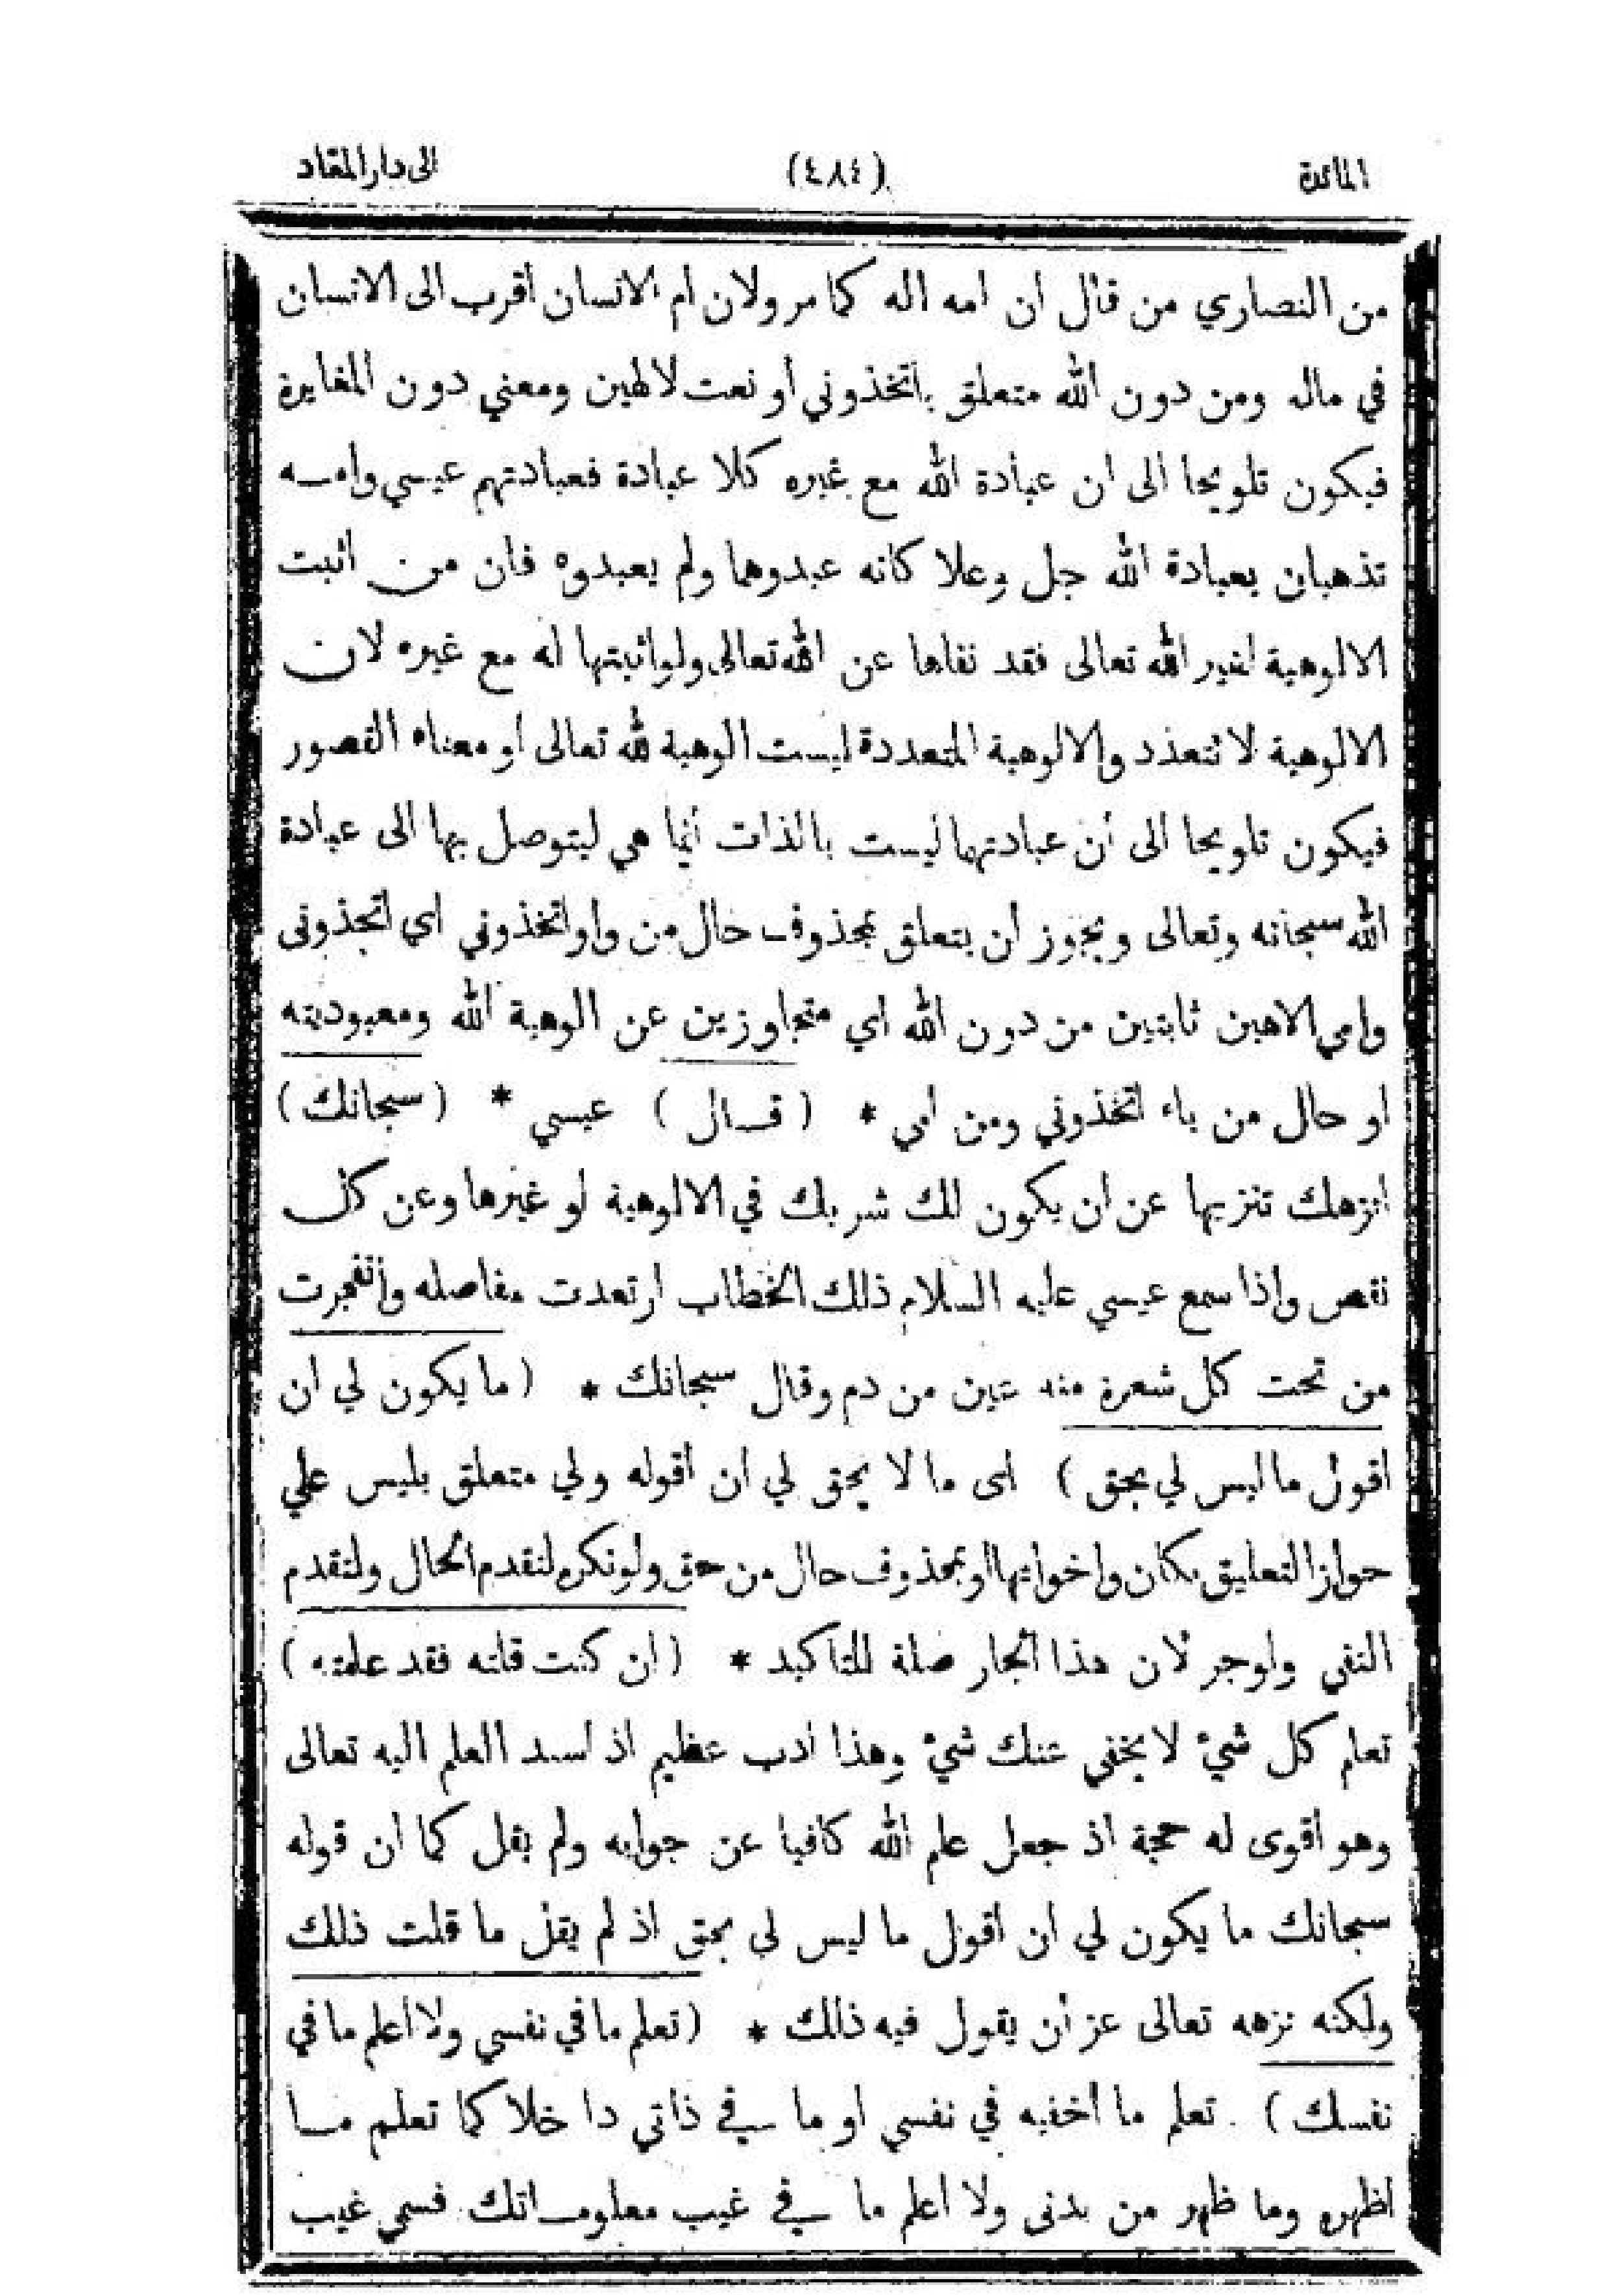 المائدة (٤٨٤) الى دار المقاد
من النصاري من قال ان امه اله كما مر ولان أم الانسان أقرب الى الانسان
في ماله ومن دون الله متعلق باتخذوني أو نعت لالهين ومعني دون المغايرة
فيكون تلويحا الى ان عبادة الله مع غيره كلا عبادة فعبادتهم عيسي وامه
تذهبان بعبادة الله جل وعلا كانه عبدوهما ولم يعبدوه فان من اثبت
الالوهية لغير الله تعالى فقد نفاها عن الله تعالى ولو اثبتها له مع غيره لان
الالوهية لا تتعدد والالوهية المتعددة ليست الوهية لله تعالى او معناه القصور
فيكون تلويحا الى أن عبادتهما ليست بالذات أنما هي ليتوصل بها الى عبادة
الله سبحانه وتعالى ويجوز أن يتعلق بمحذوف حال من واو اتخذوني اي اتخذونى
وامي الاهين ثابتين من دون الله اي متجاوزين عن الوهية الله ومعبوديته
او حال من ياء اتخذوني ومن أمي * ( قال ) عيسي * ( سبحانك )
انزهك تنزيها عن ان يكون لك شريك في الالوهية او غيرها وعن كل
نقص واذا سمع عيسي عليه السلام ذلك الخطاب ارتعدت مفاصله وأنفجرت
من تحت كل شعرة منه عين من دم وقال سبحانك * ( ما يكون لي ان
اقول ما ليس لي بحق ) اى ما لا يحق لي ان اقوله ولي متعلق بليس علي
جواز التعليق بكان واخواتها او بمحذوف حال من حق ولو نكره لتقدم الحال ولتقدم
النفي ولوجر لان هذا الجار صلة للتاكيد * ( ان كنت قلته فقد علمته )
تعلم كل شيء لا يخفى عنك شيء وهذا ادب عظيم اذ اسند العلم اليه تعالى
وهو أقوى له حجة اذ جعل علم الله كافيا عن جوابه ولم يقل كما ان قوله
سبحانك ما يكون لي ان اقول ما ليس لى بحق اذ لم يقل ما قلت ذلك
ولكنه نزهه تعالى عز أن يقول فيه ذلك * ( تعلم ما في نفسي ولا اعلم ما في
نفسك ) تعلم ما أخفيه في نفسي او ما في ذاتي داخلا كما تعلم ما
اظهره وما ظهر من بدنى ولا اعلم ما في غيب معلوماتك فسمي غيب